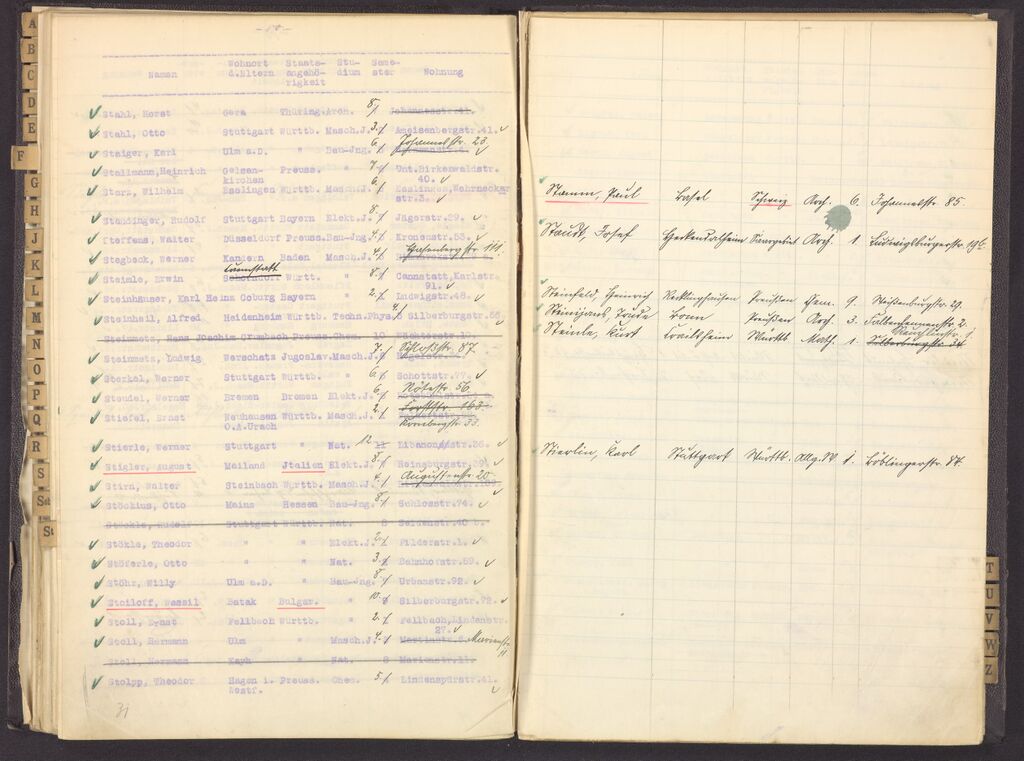 A
B
C
D
E
F
G
H
J
K
L
M
N
O
P
Q
R
S
Sch
St
Namen Wohnort d.Eltern Staats- angehö- rigkeit Stu- dium Seme- ster Wohnung
Stahl, Horst Gera Thüring. Arch. 8. Johannesstr.41.
Stahl, Otto Stuttgart Württb. Masch.J. 3. Ameisenbergstr.41.
Staiger, Karl Ulm a.D. " Bau-Jng. 6. Johannesstr. 23.
Stallmann, Heinrich Gelsen- Preuss. " 7. Unt.Birkenwaldstr.
kirchen 40.
Starz, Wilhelm Esslingen Württb. Masch.J. 6. Esslingen,Wehrneckar
str.3.
Stendinger, Rudolf Stuttgart Bayern Elekt.J. 8. Jägerstr.29.
Steffens, Walter Düsseldorf Preuss. Bau-Jng. 4. Kronenstr.53.
Stegbeck, Werner Kandern Baden Masch.J. 4. Hasenbergstr. 111.
Steimle, Erwin Cannstatt Württ. " 8. Cannstatt,Karlstr.
91.
Steinhäuser, Karl Heinz Coburg Bayern " 2. Ludwigstr.48.
Steinheil, Alfred Heidenheim Württb. Techn.Phys. 4. Silberburgstr.66
Steinmetz, Hans Joachim Crumbach Preuss. Chem. 10
Steinmetz, Ludwig Werschatz Jugoslav. Masch.J. 7. Schloßstr. 87.
Sterkel, Werner Stuttgart Württb. " 6. Schottstr.77.
Steudel, Werner Bremen Bremen Elekt.J. 6. Rötestr. 56.
Stiefel, Ernst Neuhausen Württb. Masch.J. 2. Forststr. 163.
O.A.Urach Kornbergstr. 33.
Stierle, Werner Stuttgart " Nat. 12 Libanonstr.36.
Stigler, August Mailand Jtalien Elekt.J. 8. Reinsburgstr.39
Stirn, Walter Steinbach Württb. Masch.J. 4. Augustenstr. 20.
Stöckius, Otto Mainz Hessen Bau-Jng. 8. Schlosstr.74.
Stöckle, Rudolf Stuttgart Württb. Nat. 8 Seidenstr.40 b.
Stökle, Theodor " " Elekt.J. 2. Filderstr.1.
Stöferle, Otto " " Nat. 3. Bahnhofstr.59.
Stöhr, Willy Ulm a.D. " Bau-Jng. 8. Urbanstr.92.
Stoiloff, Wassil Batak Bulgar. " 10. Silberburgstr.72.
Stoll, Ernst Fellbach Württb. " 2. Fellbach,Lindenstr.
27.
Stoll, Hermann Ulm " Masch.J. 4. Marienstr.
11.
Stoll, Hermann " Nat. 8 Marienstr.11.
Stolpp, Theodor Hagen i. Preuss. Chem. 5. Lindenspürstr.41.
Westf.
31
Stamm, Paul Basel Schweiz Arch. 6. Johannesstr. 85.
Staudt, Josef Saargebiet Arch. 1. Ludwigsburgerstr. 196
Steinfeld, Heinrich Recklinghausen Preußen Chem. 9. Weißenburgstr. 29.
Steinijans, Trude Bonn Preußen Arch. 3. Falkerhennenstr. 2
Steinle, Kurt Crailsheim Württb. Math. 1. Silberburgstr. 34
Stierlin, Karl Stuttgart Württb. Allg.W. 1. Böblingerstr. 84.
T
U
V
W
Z